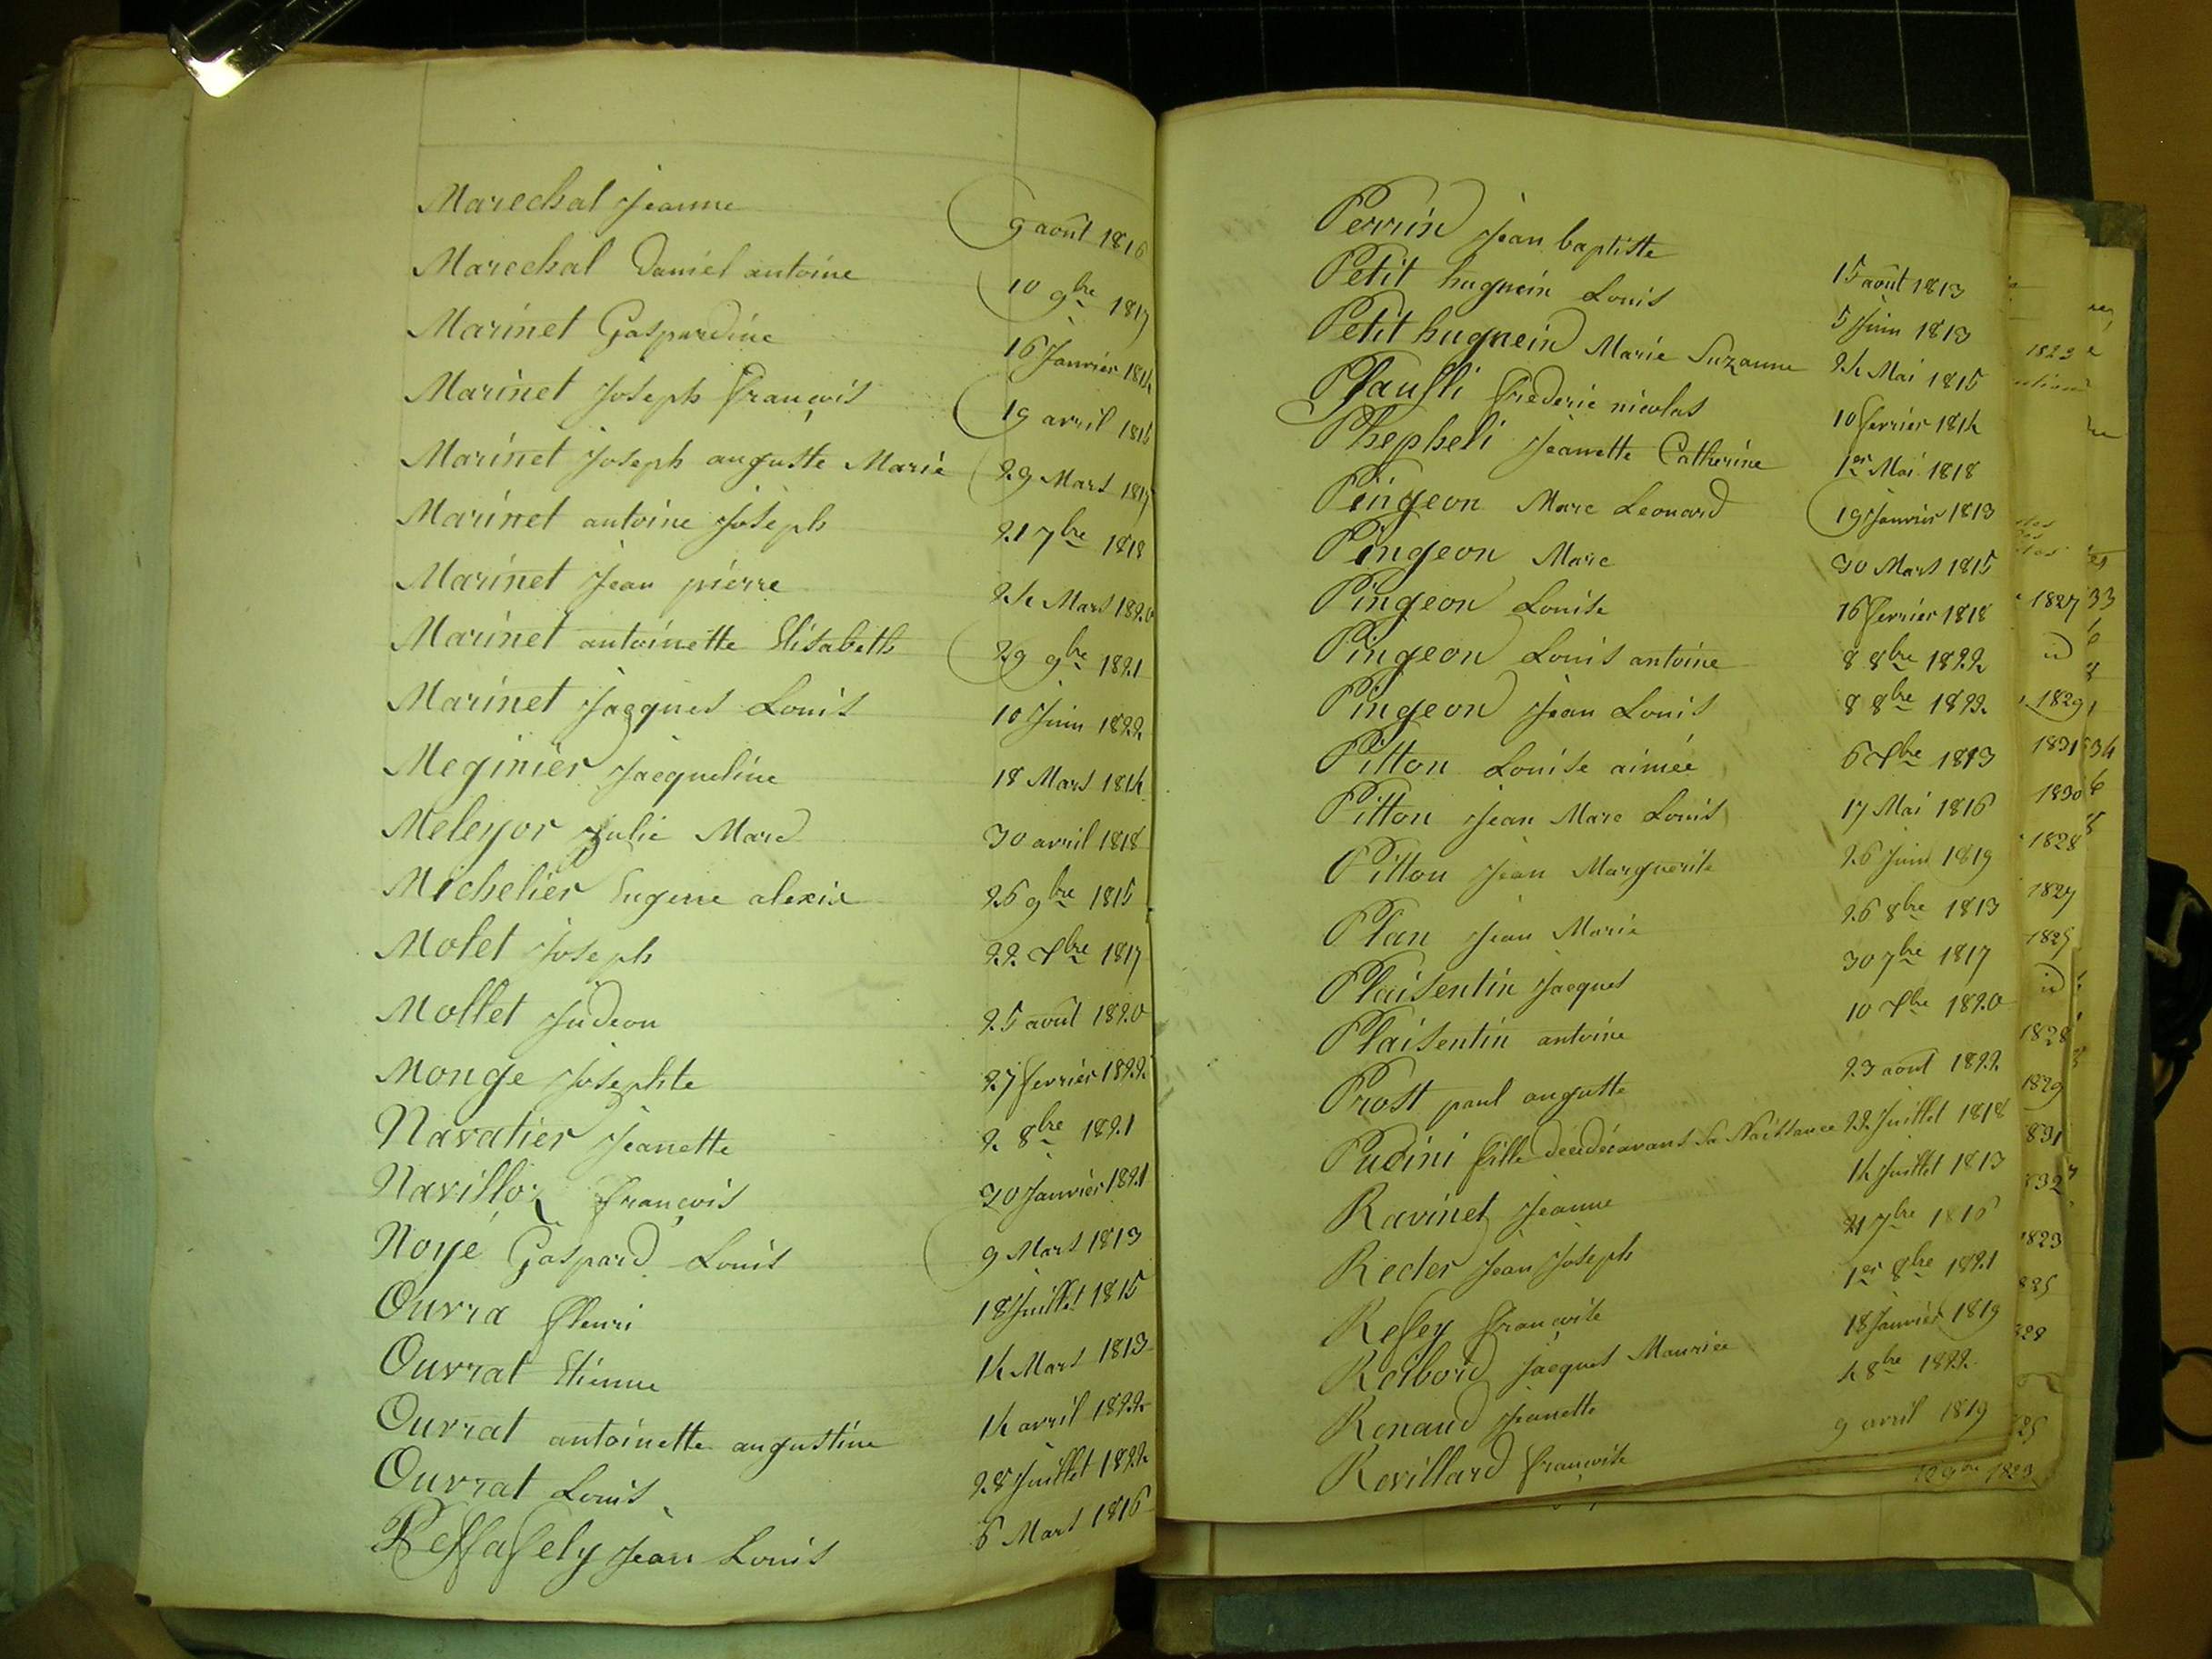 Marechal Jeanne 9 août 1816
Marechal Daniel antoine 10 9bre 1817
Marinet Gaspardine 16 Janvier 1814
Marinet Joseph François 19 avril 1815
Marinet Joseph auguste Marie 29 Mars 1817
Marinet antoine Joseph 21 7bre 1818
Marinet Jean pierre 24 Mars 1820
Marinet antoinette Elisabeth 29 9bre 1821
Marinet Jacques Louis 10 Juin 1822
Meginier Jacqueline 18 Mars 1814
Meleyor Julie Marc 30 avril 1818
Michelier Eugene alexis 26 9bre 1815
Molet Joseph 22 Xbre 1817
Mollet Judeon 25 août 1820
Monge Josephte 27 fevrier 1822
Navatier Jeanette 2 8bre 1821
Navilloz François 20 Janvier 1821
Noyé Gaspard Louis 9 Mars 1813
Ouvra fleuri 18 Juillet 1815
Ouvrat Etienne 14 Mars 1813
Ouvrat antoinette augustine 14 avril 1822
Ouvrat Louis 28 Juillet 1822
Jean Louis 6 Mars 1816
Perrin Jean baptiste 15 août 1813
Petit huguein Louis 5 Juin 1813
Petit huguein Marie Suzanne 24 Mai 1815
Pfaufli frederic nicolas 10 fevrier 1814
Phepheli Jeanette Catherine 1er Mai 1818
Pingeon Marc Leonard 19 Janvier 1813
Pingeon Marc 30 Mars 1815
Pingeon Louise 16 fevrier 1818
Pingeon Louis antoine 8 8bre 1822
Pingeon Jean Louis 8 8bre 1822
Pitton Louise aimée 6 Xbre 1813
Pitton Jean Marc Louis 17 Mai 1816
Pitton Jean Marguerite 26 Juin 1819
Plan Jean Marie 26 8bre 1813
Plaisentin Jacques 30 7bre 1817
Plaisentin antoine 10 Xbre 1820
Prost paul auguste 23 août 1822
Pudini fille décédée avant Sa Naissance 22 Juillet 1818
Ravinet Jeanne 14 Juillet 1813
Recter Jean Joseph 21 7bre 1816
Resey françoise 1er 8bre 1821
Reibord Jacques Maurice 18 Janvier 1819
Renaud Jeanette 4 8bre 1822
Revillard françoise 9 avril 1819
1823
1827 33
id
1829
1831 34
1830
1828
1827
1825
id
1828
1829
831
1823
12 9bre 1823